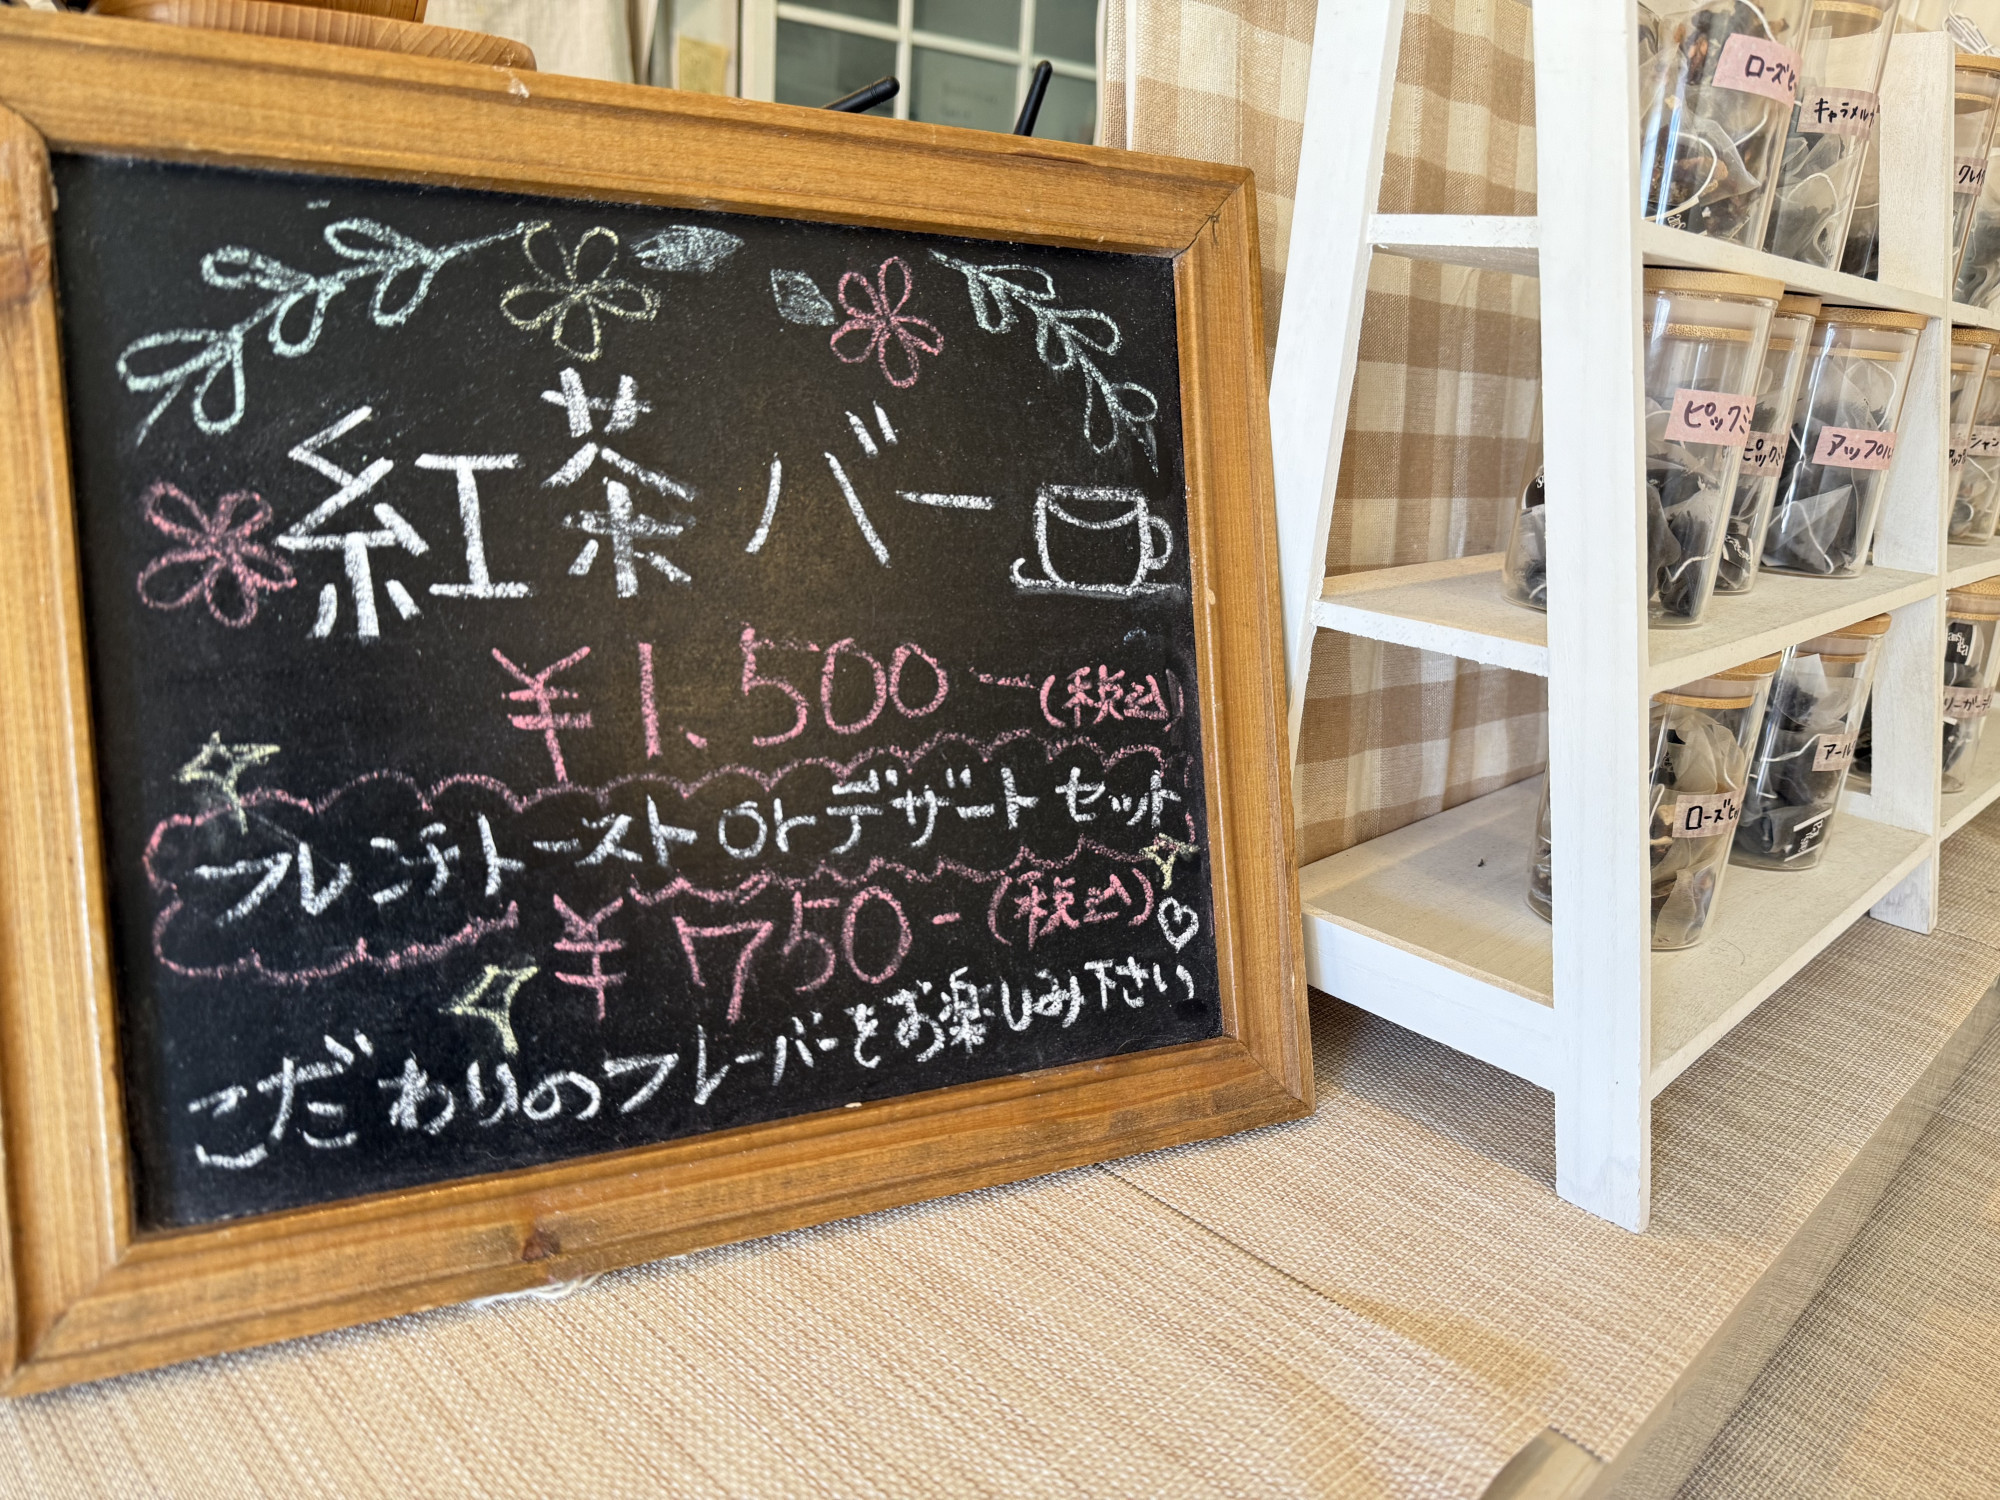 紅茶バー
¥1,500-(税込)
フレンチトースト or デザートセット
¥750-(税込)
こだわりのフレーバーをお楽しみ下さい
ローズヒ
キャラメル
クレイ
ピックミ
ピックミ
アップル
シャン
アップ
リーガーデ
アール
ローズヒ